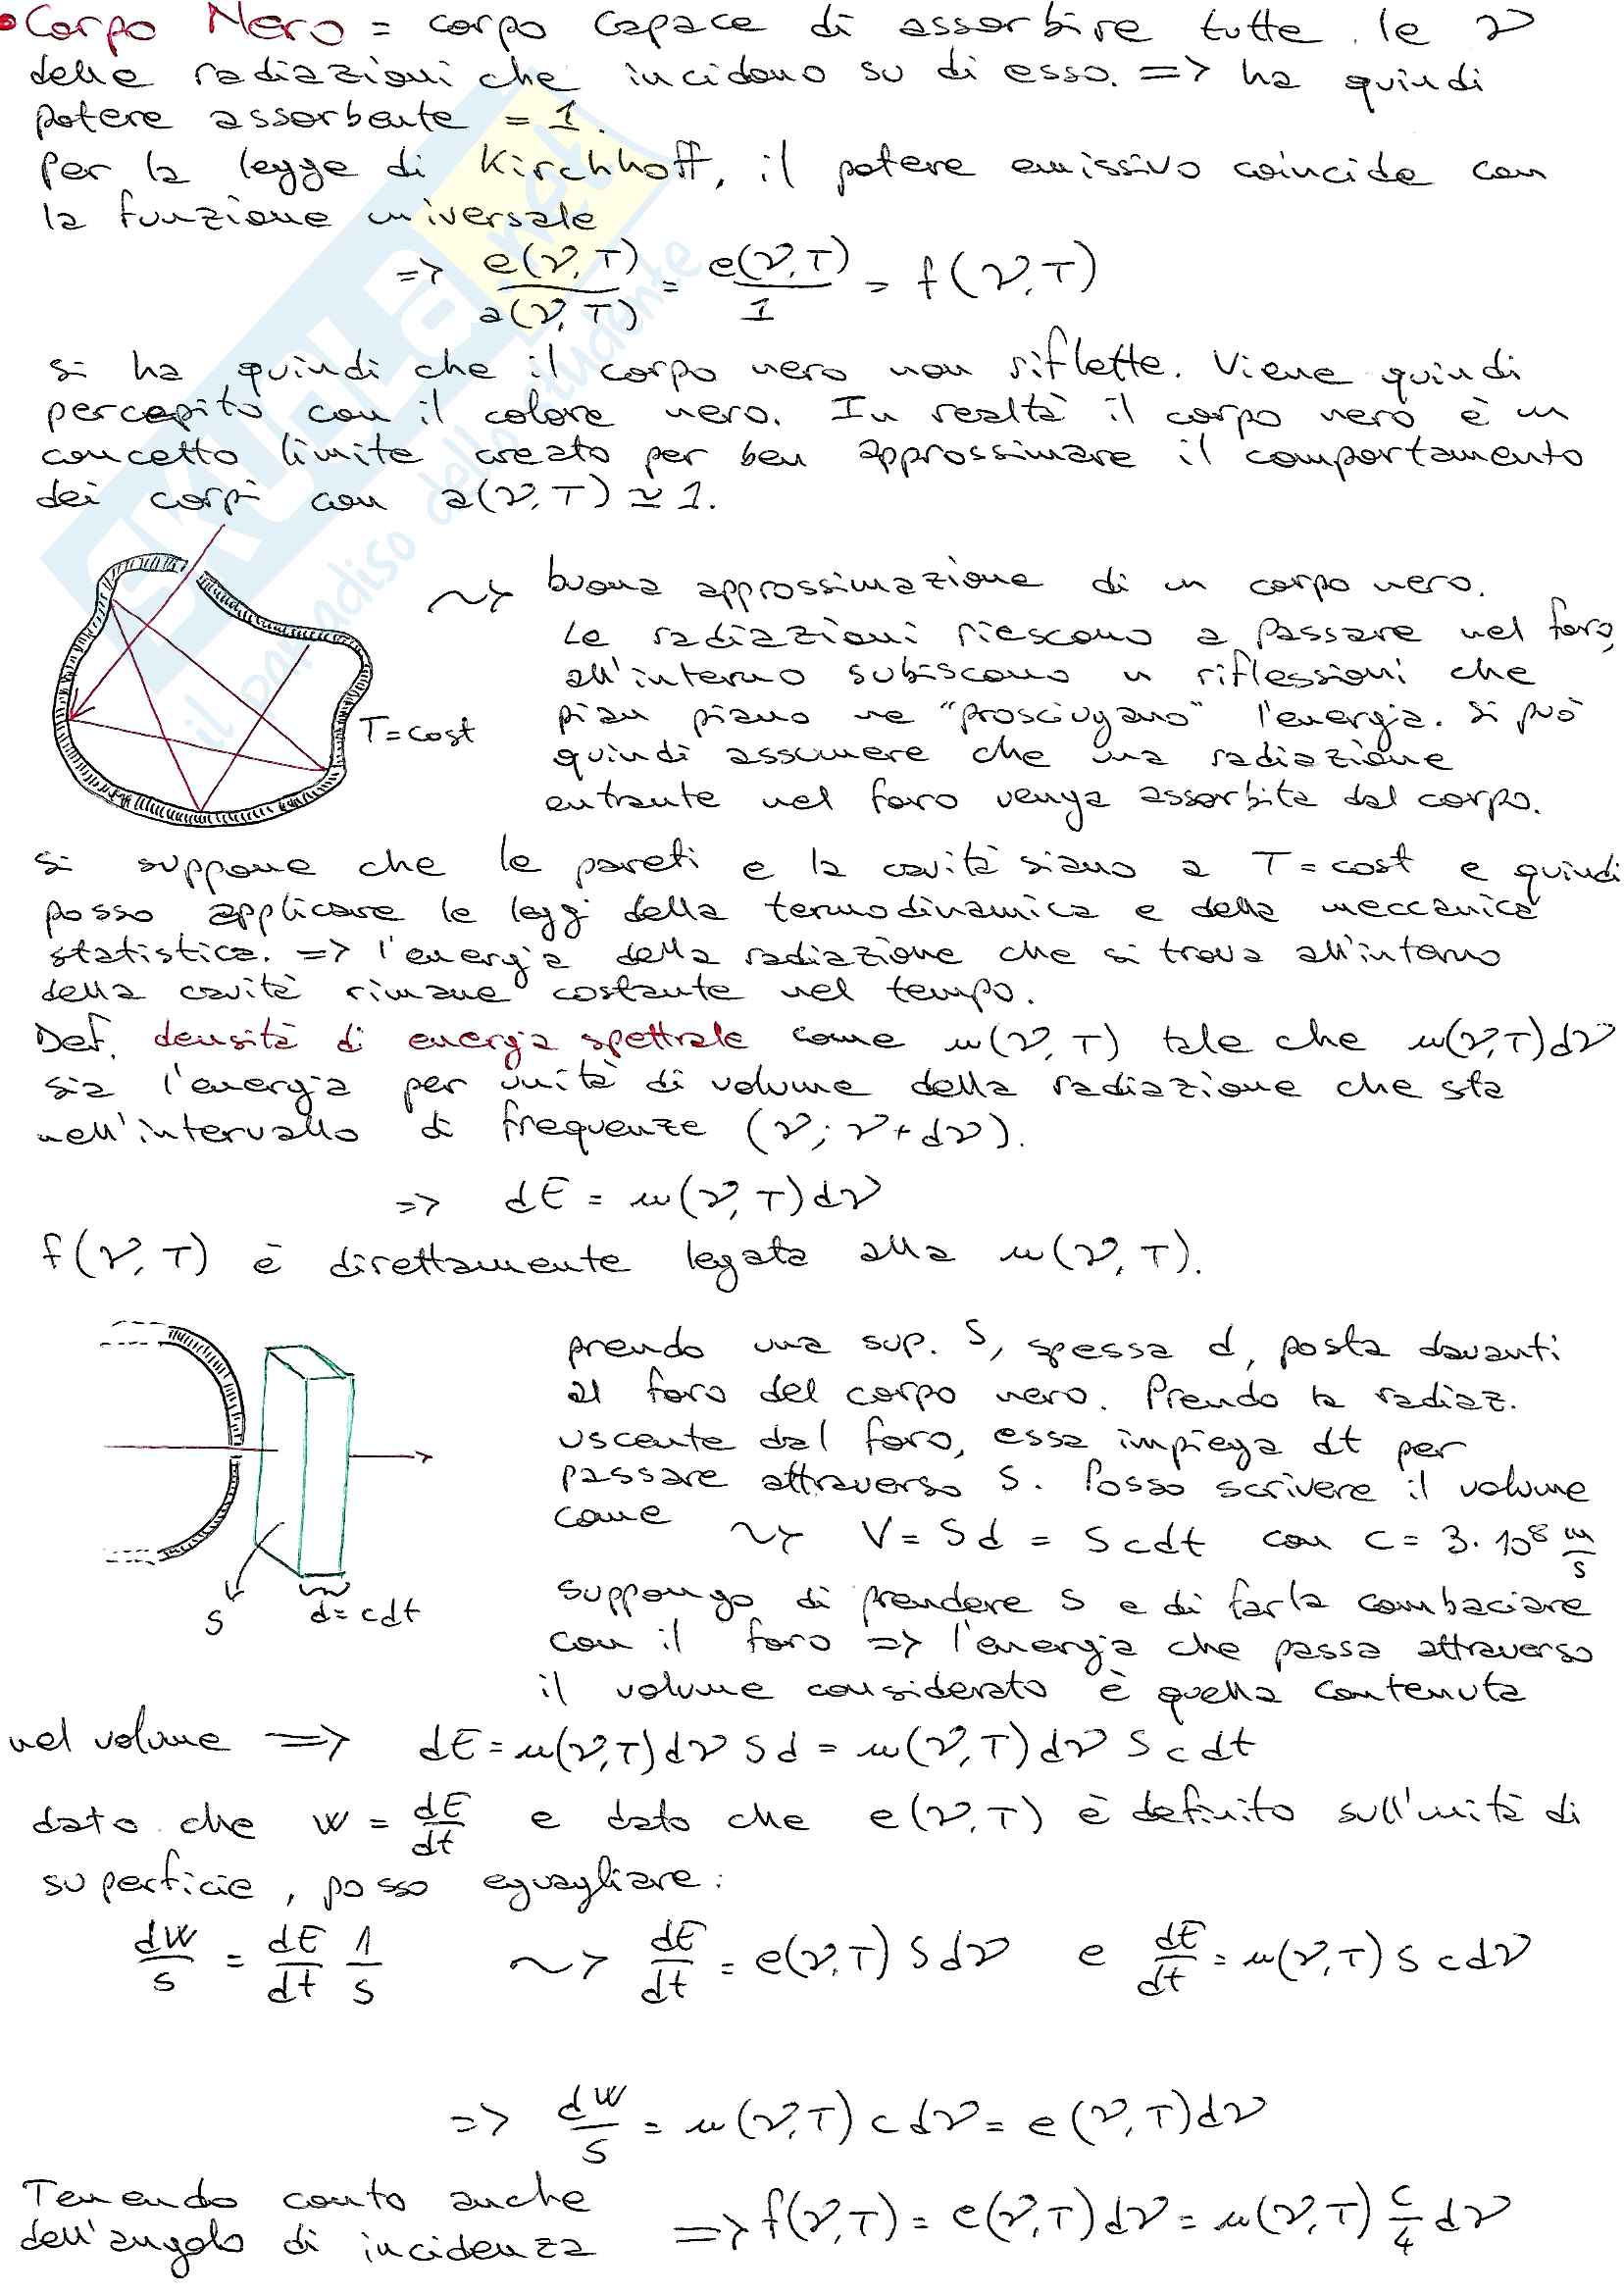 • Corpo Nero = corpo capace di assorbire tutte le ν
delle radiazioni che incidono su di esso. => ha quindi
potere assorbente = 1.
Per la legge di Kirchhoff, il potere emissivo coincide con
la funzione universale
=> e(ν,T)/a(ν,T) = e(ν,T)/1 = f(ν,T)
si ha quindi che il corpo nero non riflette. Viene quindi
percepito con il colore nero. In realtà il corpo nero è un
concetto limite creato per ben approssimare il comportamento
dei corpi con a(ν,T) ≃ 1.
~> buona approssimazione di un corpo nero.
Le radiazioni riescono a passare nel foro,
all'interno subiscono n riflessioni che
pian piano ne "prosciugano" l'energia. Si può
quindi assumere che una radiazione
entrante nel foro venga assorbita dal corpo.
T = cost
Si suppone che le pareti e la cavità siano a T = cost e quindi
posso applicare le leggi della termodinamica e della meccanica
statistica. => l'energia della radiazione che si trova all'interno
della cavità rimane costante nel tempo.
Def. densità di energia spettrale come u(ν,T) tale che u(ν,T)dν
sia l'energia per unità di volume della radiazione che sta
nell'intervallo di frequenze (ν; ν+dν).
=> dE = u(ν,T)dν
f(ν,T) è direttamente legata alla u(ν,T).
prendo una sup. S, spessa d, posta davanti
al foro del corpo nero. Prendo la radiaz.
uscente dal foro, essa impiega dt per
passare attraverso S. Posso scrivere il volume
come ~> V = Sd = Scdt con c = 3·10⁸ m/s
suppongo di prendere S e di farla combaciare
con il foro => l'energia che passa attraverso
il volume considerato è quella contenuta
S
d = cdt
nel volume => dE = u(ν,T)dν Sd = u(ν,T)dν S c dt
dato che W = dE/dt e dato che e(ν,T) è definito sull'unità di
superficie, posso eguagliare:
dW/S = dE/dt 1/S ~> dE/dt = e(ν,T) S dν e dE/dt = u(ν,T) S c dν
=> dW/S = u(ν,T) c dν = e(ν,T)dν
Tenendo conto anche
dell'angolo di incidenza => f(ν,T) = e(ν,T)dν = u(ν,T) c/4 dν
SKUOLA.net
il paradiso dello studente